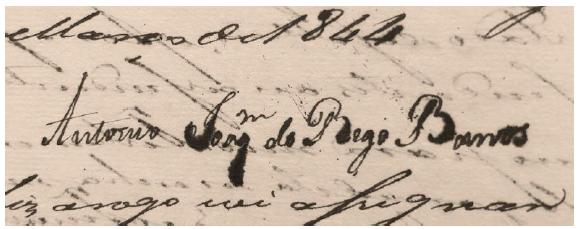 Março de 1844
Antonio Joaqm do Rego Barros
a rogo vi assignar